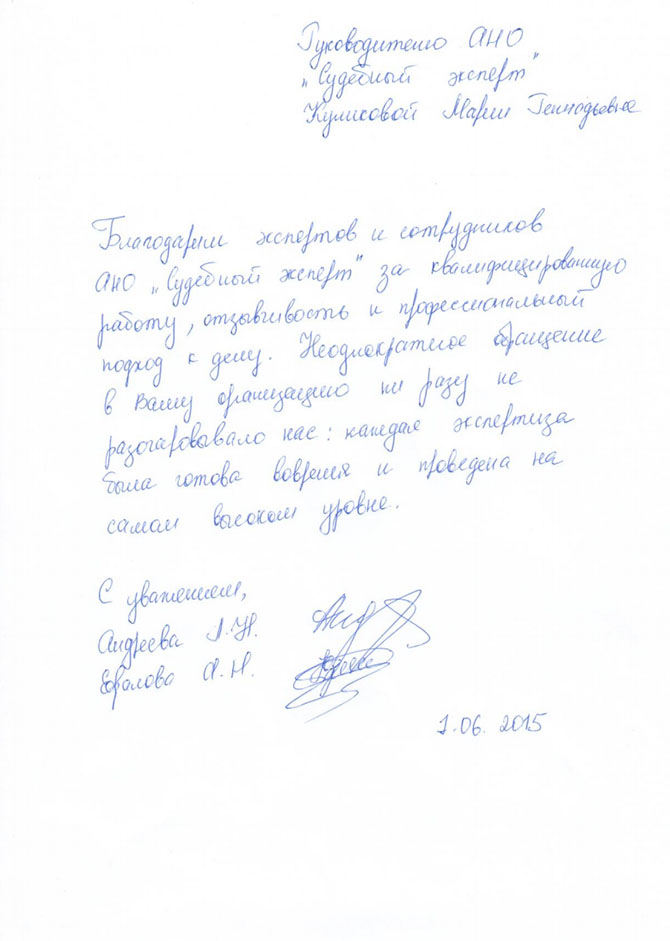 Руководителю АНО
„Судебный эксперт"
Куликовой Марии Геннадьевне
Благодарим экспертов и сотрудников
АНО „Судебный эксперт" за квалифицированную
работу, отзывчивость и профессиональный
подход к делу. Неоднократное обращение
в Вашу организацию ни разу не
разочаровывало нас: каждая экспертиза
была готова вовремя и проведена на
самом высоком уровне.
С уважением,
Андреева Л.Н.
А.Н.
1.06.2015